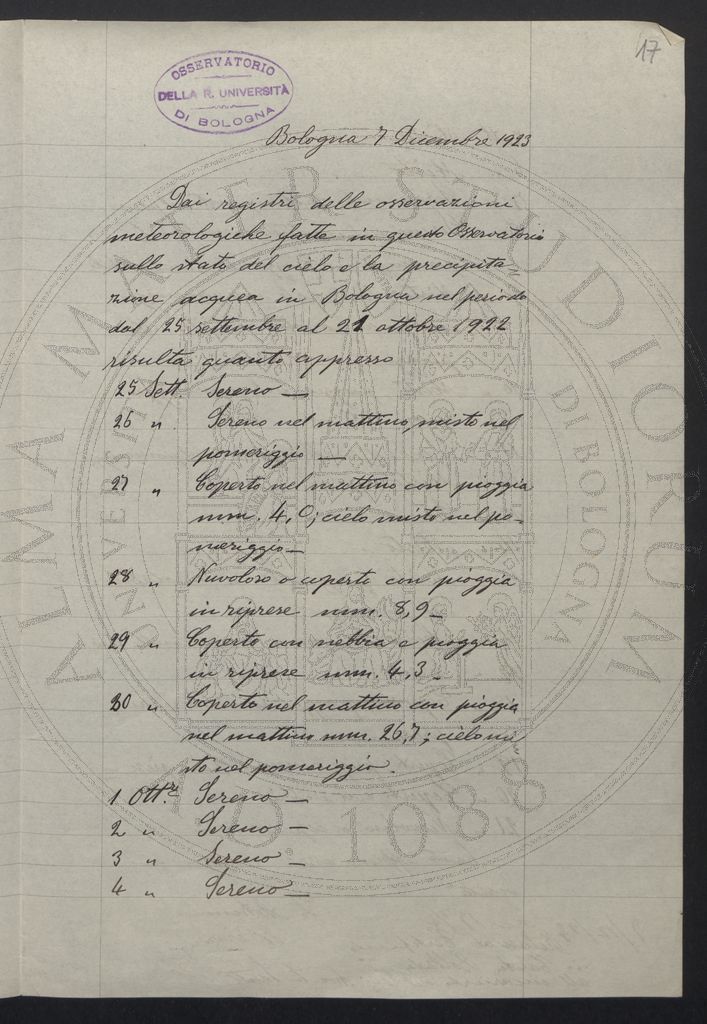 17
OSSERVATORIO
DELLA R. UNIVERSITÀ
DI BOLOGNA
Bologna 7 Dicembre 1923
Dai registri delle osservazioni
meteorologiche fatte in questo Osservatorio
sullo stato del cielo e la precipita=
zione acquea in Bologna nel periodo
dal 25 settembre al 21 ottobre 1922
risulta quanto appresso
25 Sett. Sereno —
26 " Sereno nel mattino, misto nel
pomeriggio —
27 " Coperto nel mattino con pioggia
mm. 4,0; cielo misto nel po-
meriggio —
28 " Nuvoloso o coperto con pioggia
in riprese mm. 8,9 —
29 " Coperto con nebbia e pioggia
in riprese mm. 4,3 —
30 " Coperto nel mattino con pioggia
nel mattino mm. 26,7; cielo mi=
sto nel pomeriggio.
1 Ott.re Sereno —
2 " Sereno —
3 " Sereno —
4 " Sereno —
ALMA MATER STUDIORUM
UNIVERSITÀ DI BOLOGNA
A.D. 1088